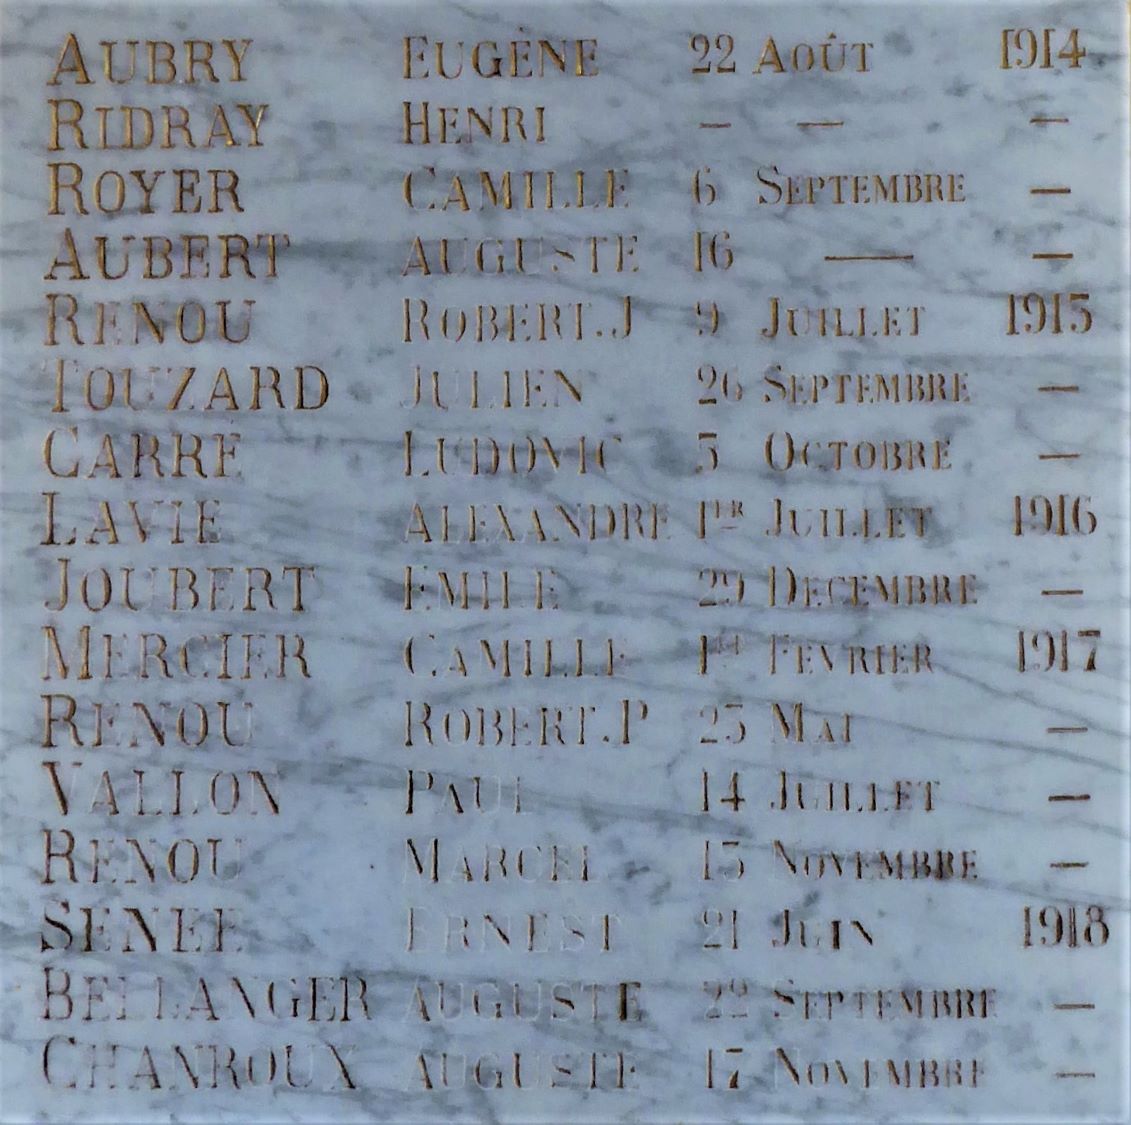 AUBRY EUGÈNE 22 AOÛT 1914
RIDRAY HENRI — — —
ROYER CAMILLE 6 SEPTEMBRE —
AUBERT AUGUSTE 16 — —
RENOU ROBERT.J 9 JUILLET 1915
TOUZARD JULIEN 26 SEPTEMBRE —
CARRÉ LUDOVIC 5 OCTOBRE —
LAVIE ALEXANDRE 1ER JUILLET 1916
JOUBERT EMILE 29 DECEMBRE —
MERCIER CAMILLE 1ER FEVRIER 1917
RENOU ROBERT.P 25 MAI —
VALLON PAUL 14 JUILLET —
RENOU MARCEL 15 NOVEMBRE —
SENÉE ERNEST 21 JUIN 1918
BELLANGER AUGUSTE 29 SEPTEMBRE —
CHANROUX AUGUSTE 17 NOVEMBRE —